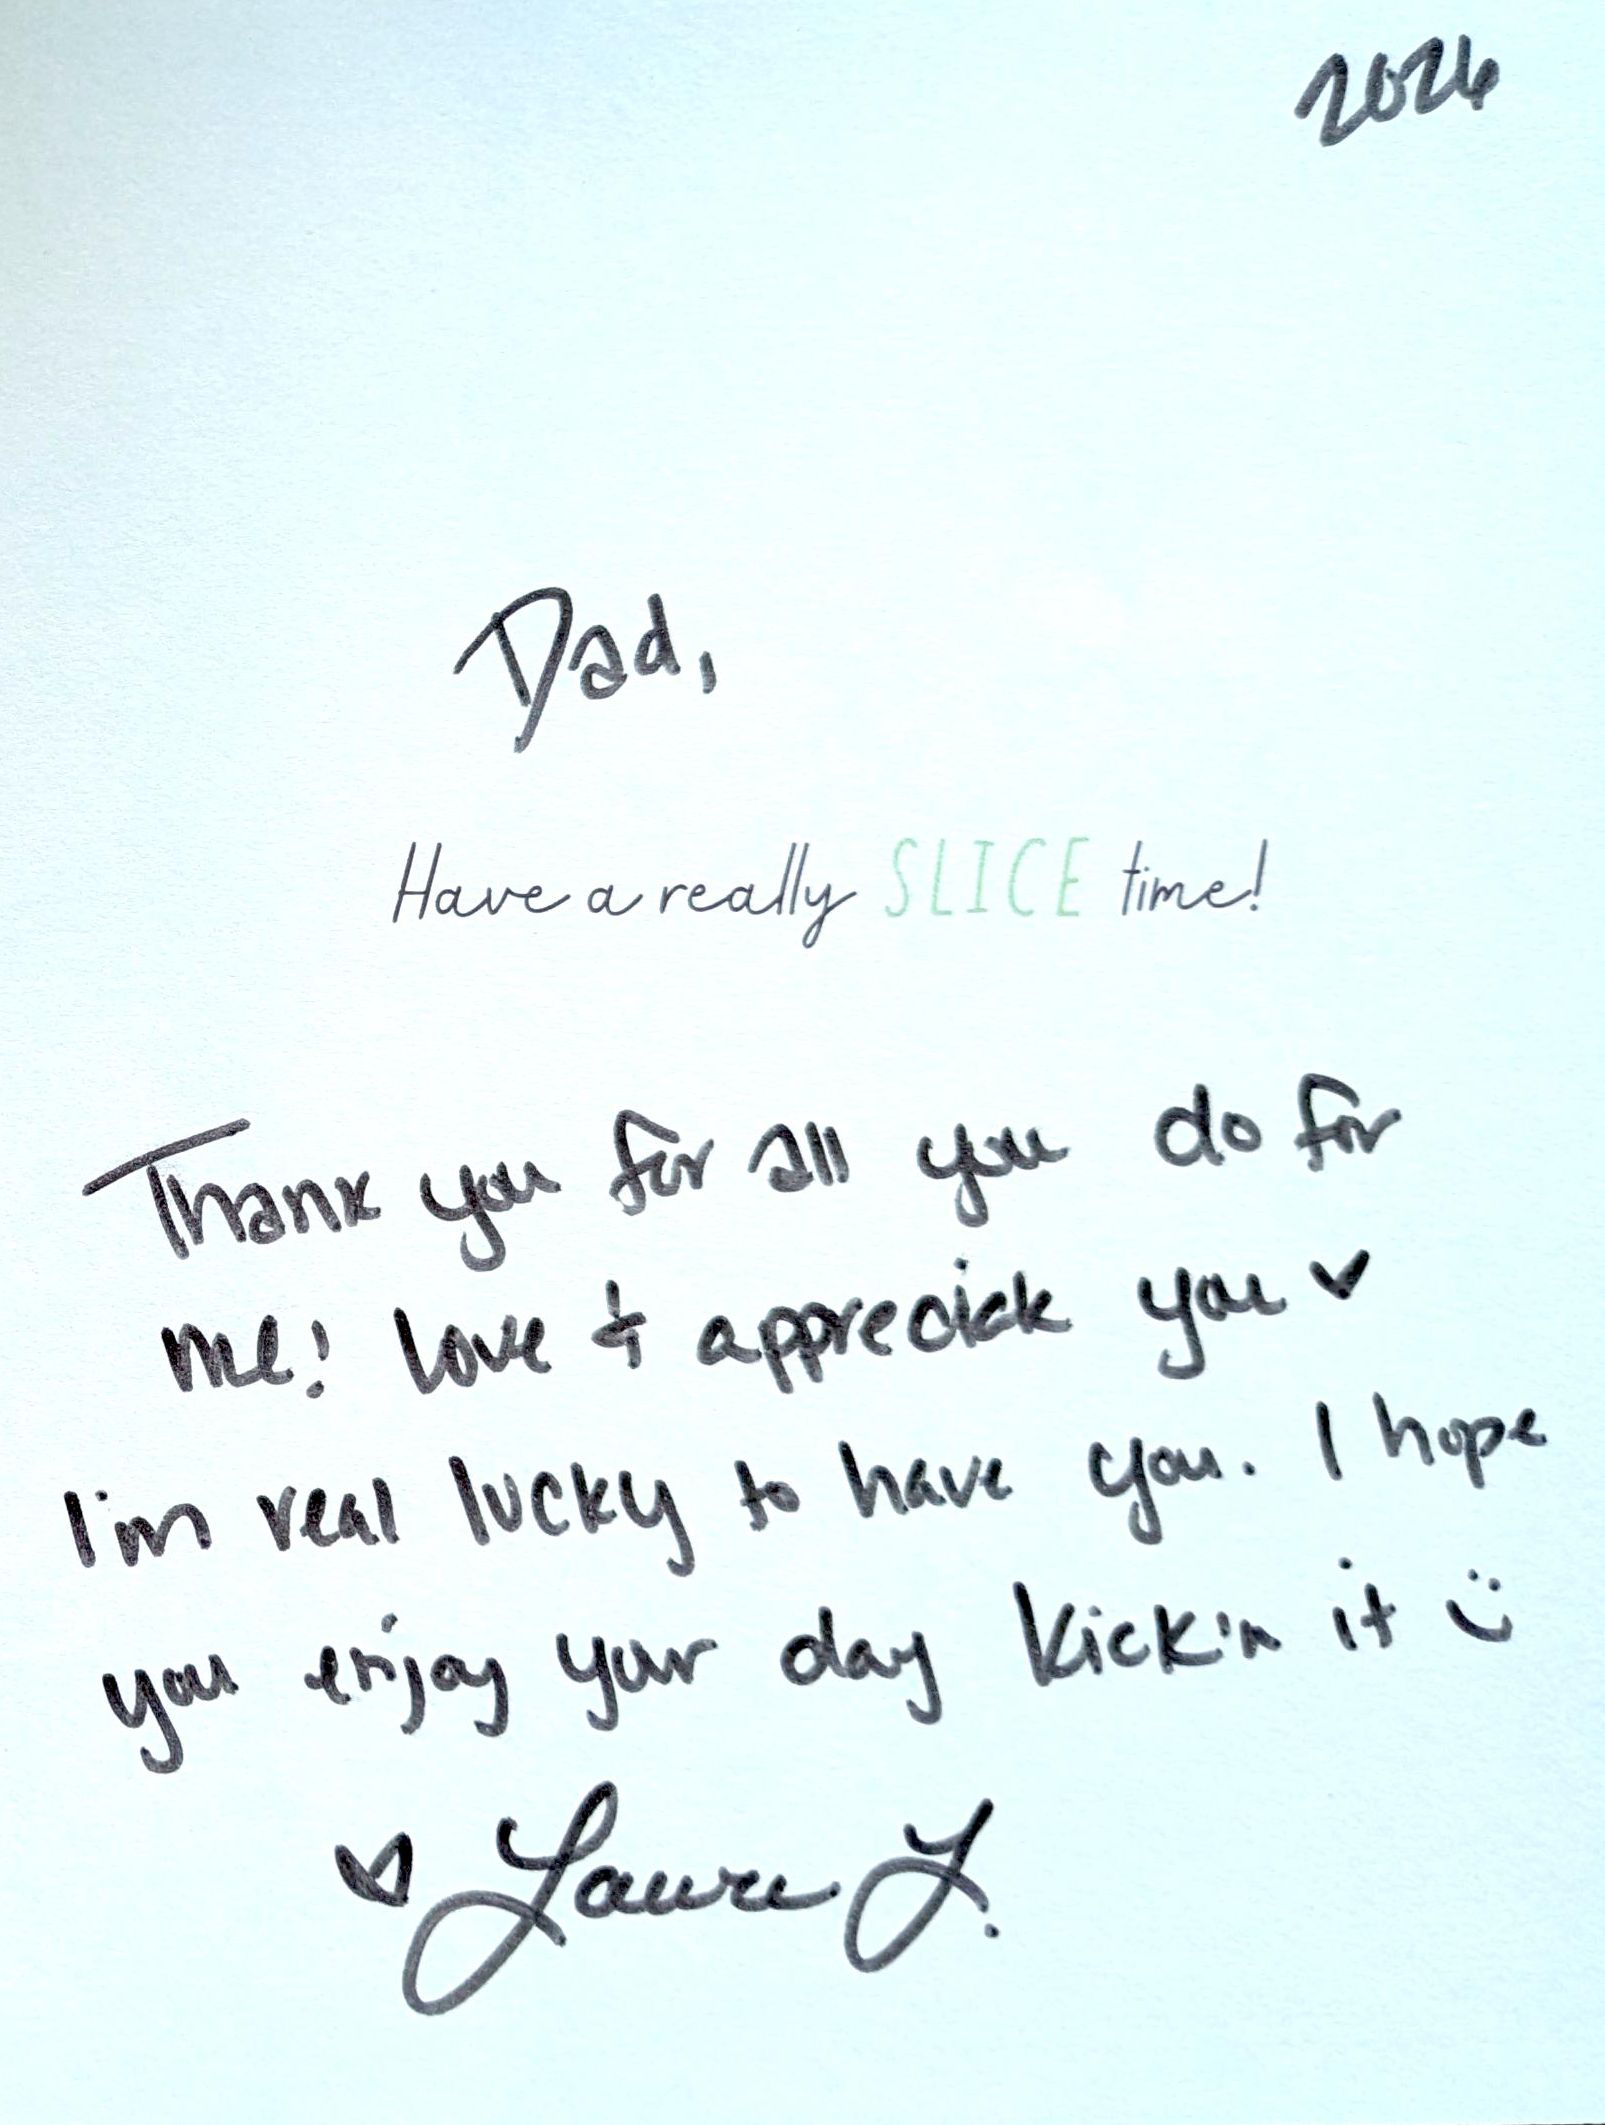 2026
Dad,
Have a really SLICE time!
Thank you for all you do for
me! Love & appreciate you ♥
I'm real lucky to have you. I hope
you enjoy your day kick'n it :)
♥ Laura L.